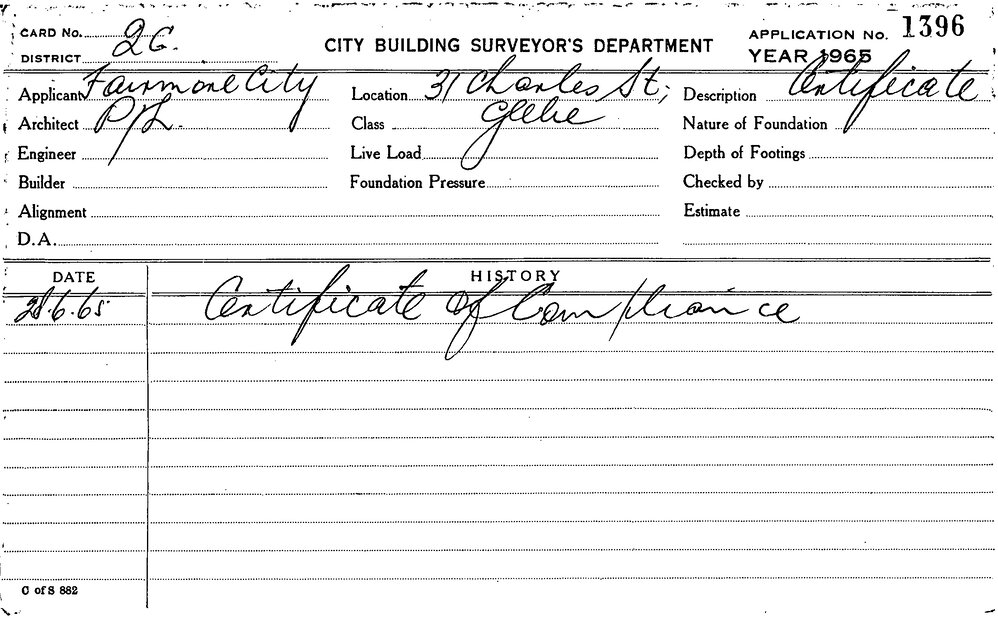 CARD No. 2G. CITY BUILDING SURVEYOR'S DEPARTMENT APPLICATION No. 1396
DISTRICT YEAR 1965
Applicant Fairmone City Location 31 Charles St; Description Certificate
Architect P/L. Class Glebe Nature of Foundation
Engineer Live Load Depth of Footings
Builder Foundation Pressure Checked by
Alignment Estimate
D.A.
DATE HISTORY
28.6.65 Certificate of Compliance
C of S 882